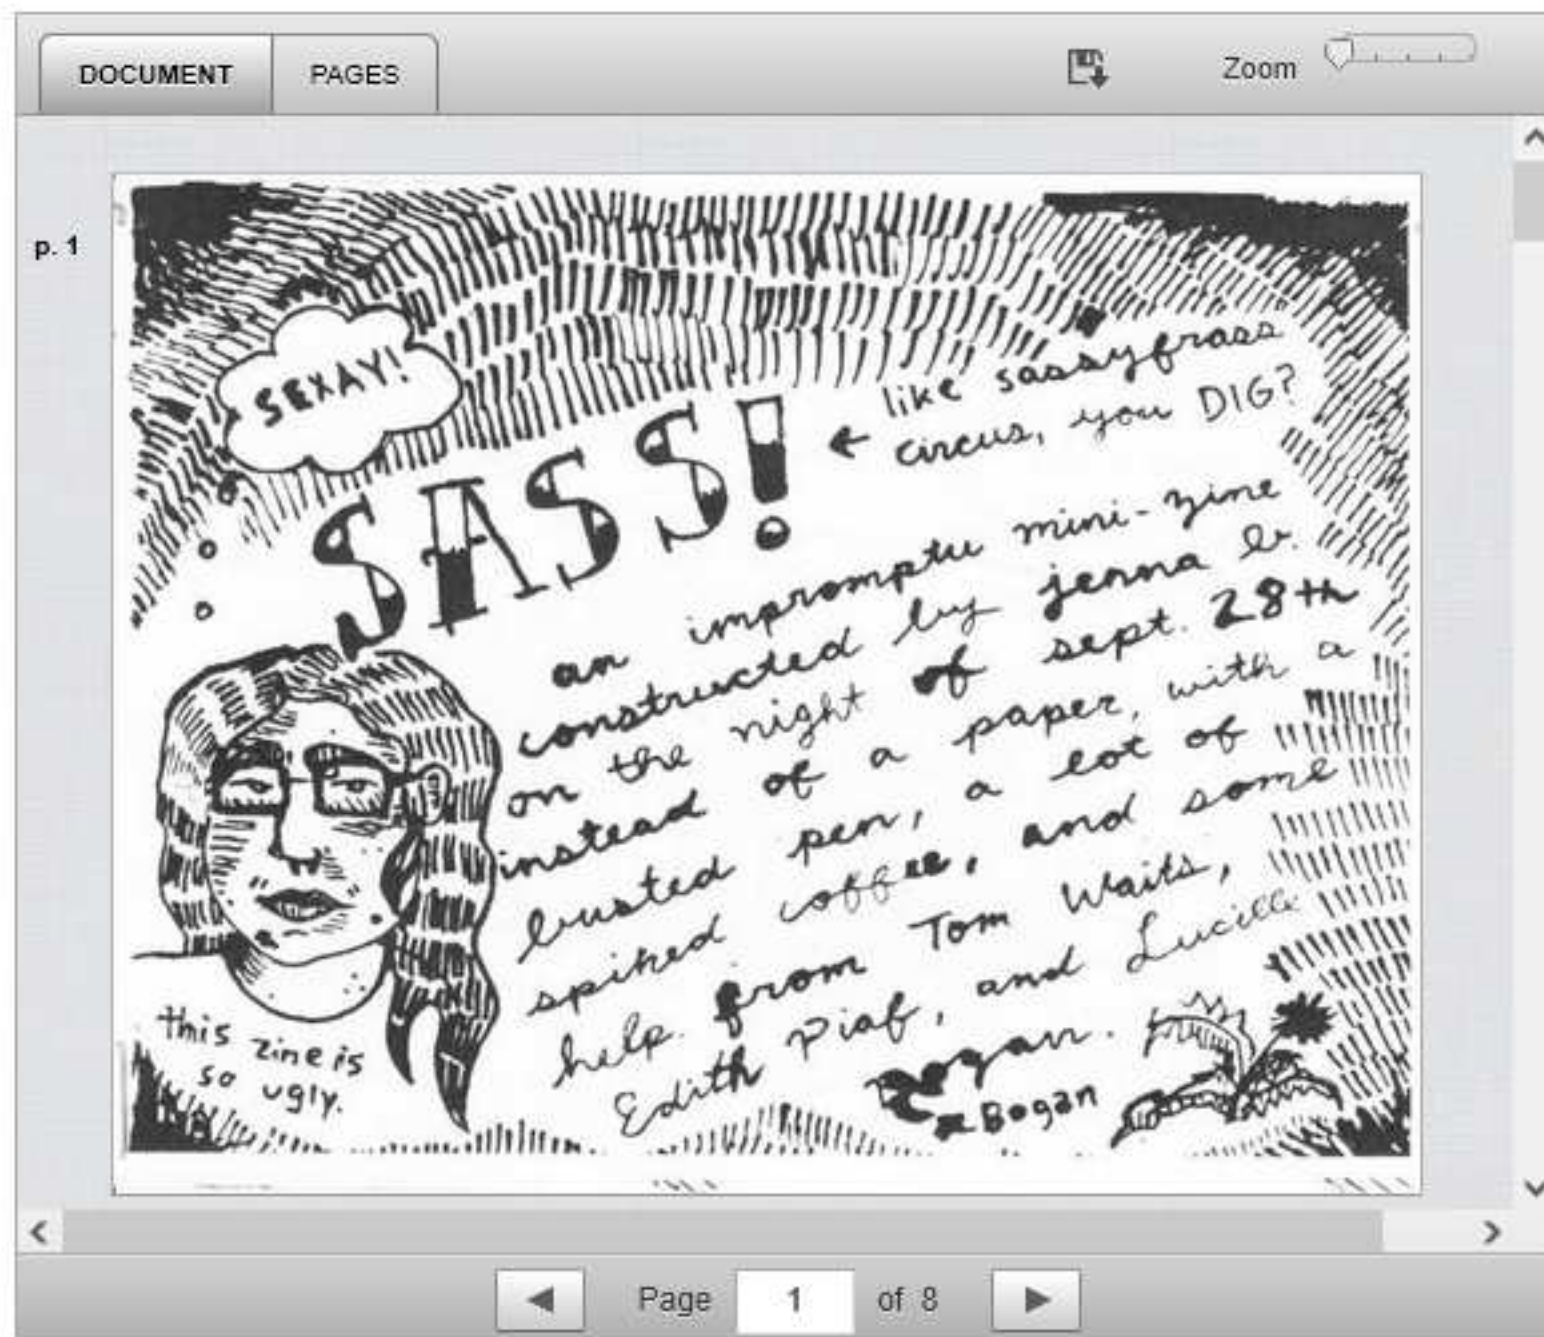 DOCUMENT PAGES Zoom
p. 1
SEXAY!
SASS! ← like sassyfrass
circus, you DIG?
an impromptu mini-zine
constructed by jenna b.
on the night of sept. 28th
instead of a paper, with a
busted pen, a lot of
spiked coffee, and some
help from Tom Waits,
Edith Piaf, and Lucille
Bogan.
Bogan
this zine is
so ugly.
Page 1 of 8